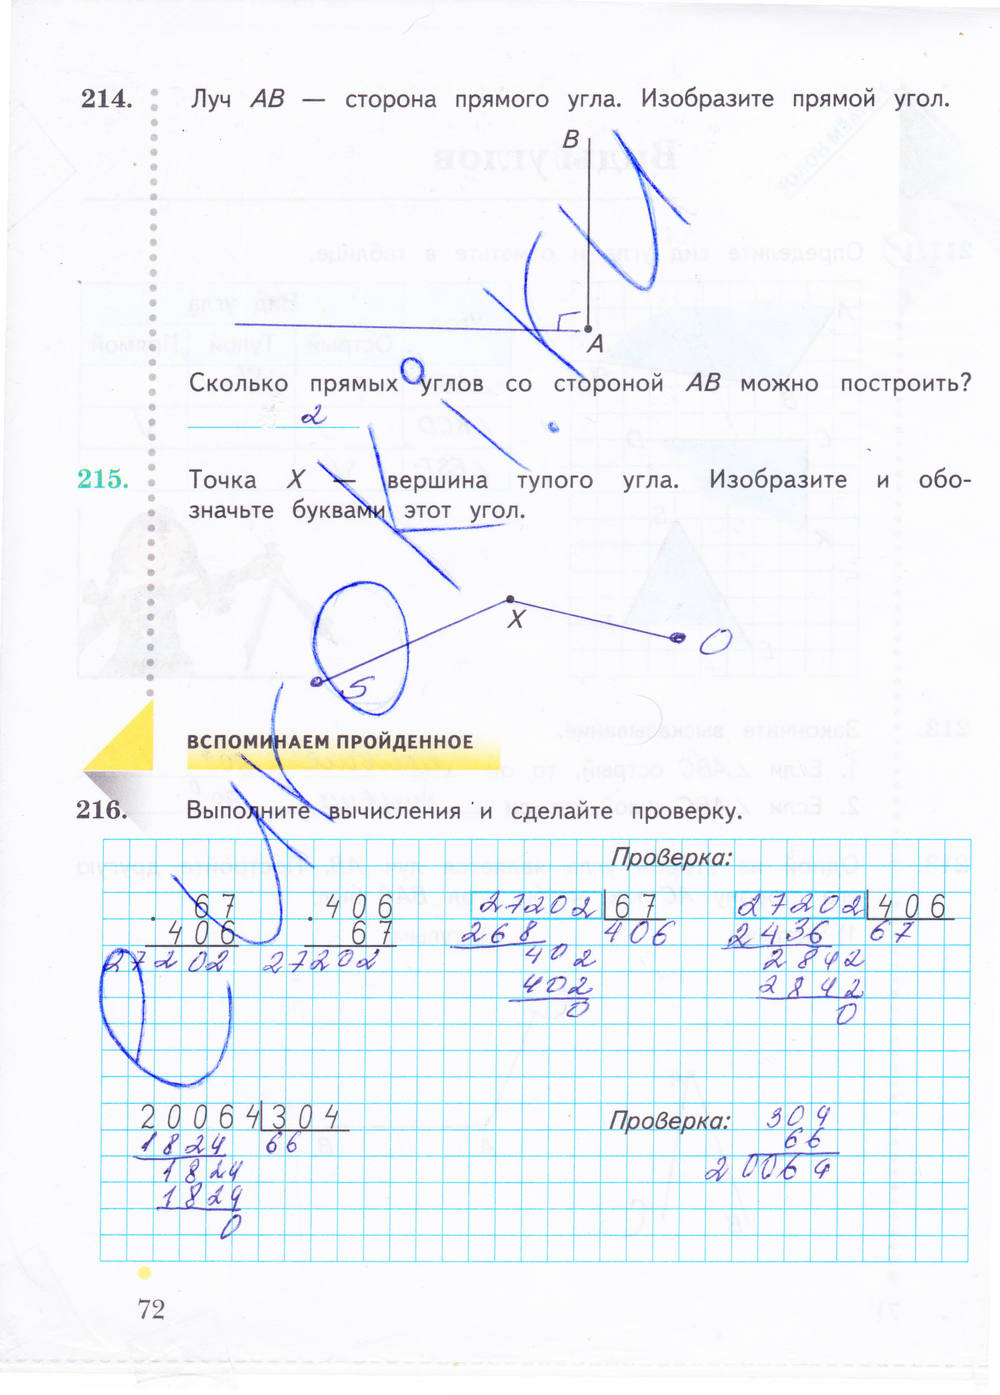 214. Луч AB — сторона прямого угла. Изобразите прямой угол.
B
A
Сколько прямых углов со стороной AB можно построить?
2
215. Точка X — вершина тупого угла. Изобразите и обо-
значьте буквами этот угол.
X
O
S
ВСПОМИНАЕМ ПРОЙДЕННОЕ
216. Выполните вычисления и сделайте проверку.
Проверка:
67 406 27202 67 27202 406
406 67 268 406 2436 67
27202 27202 402 2842
402 2842
0 0
20064 304 Проверка: 304
1824 66 66
1824 20064
1824
0
72